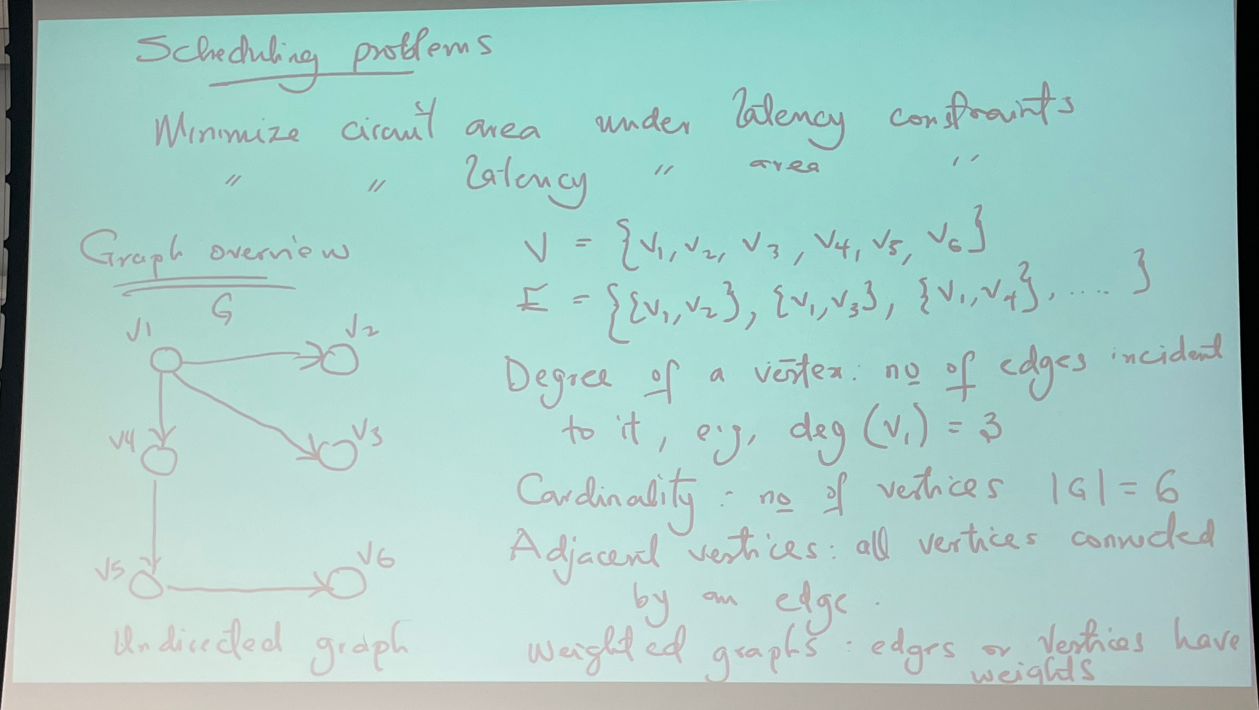 Scheduling problems
Minimize circuit area under latency constraints
" " latency " area "
Graph overview
G
V1
V2
V3
V4
V5
V6
Undirected graph
V = {V1, V2, V3, V4, V5, V6}
E = {{V1, V2}, {V1, V3}, {V1, V4}, .... }
Degree of a vertex: no of edges incident
to it, e.g, deg (V1) = 3
Cardinality : no of vertices |G| = 6
Adjacent vertices: all vertices connected
by an edge.
Weighted graphs : edges or vertices have
weights